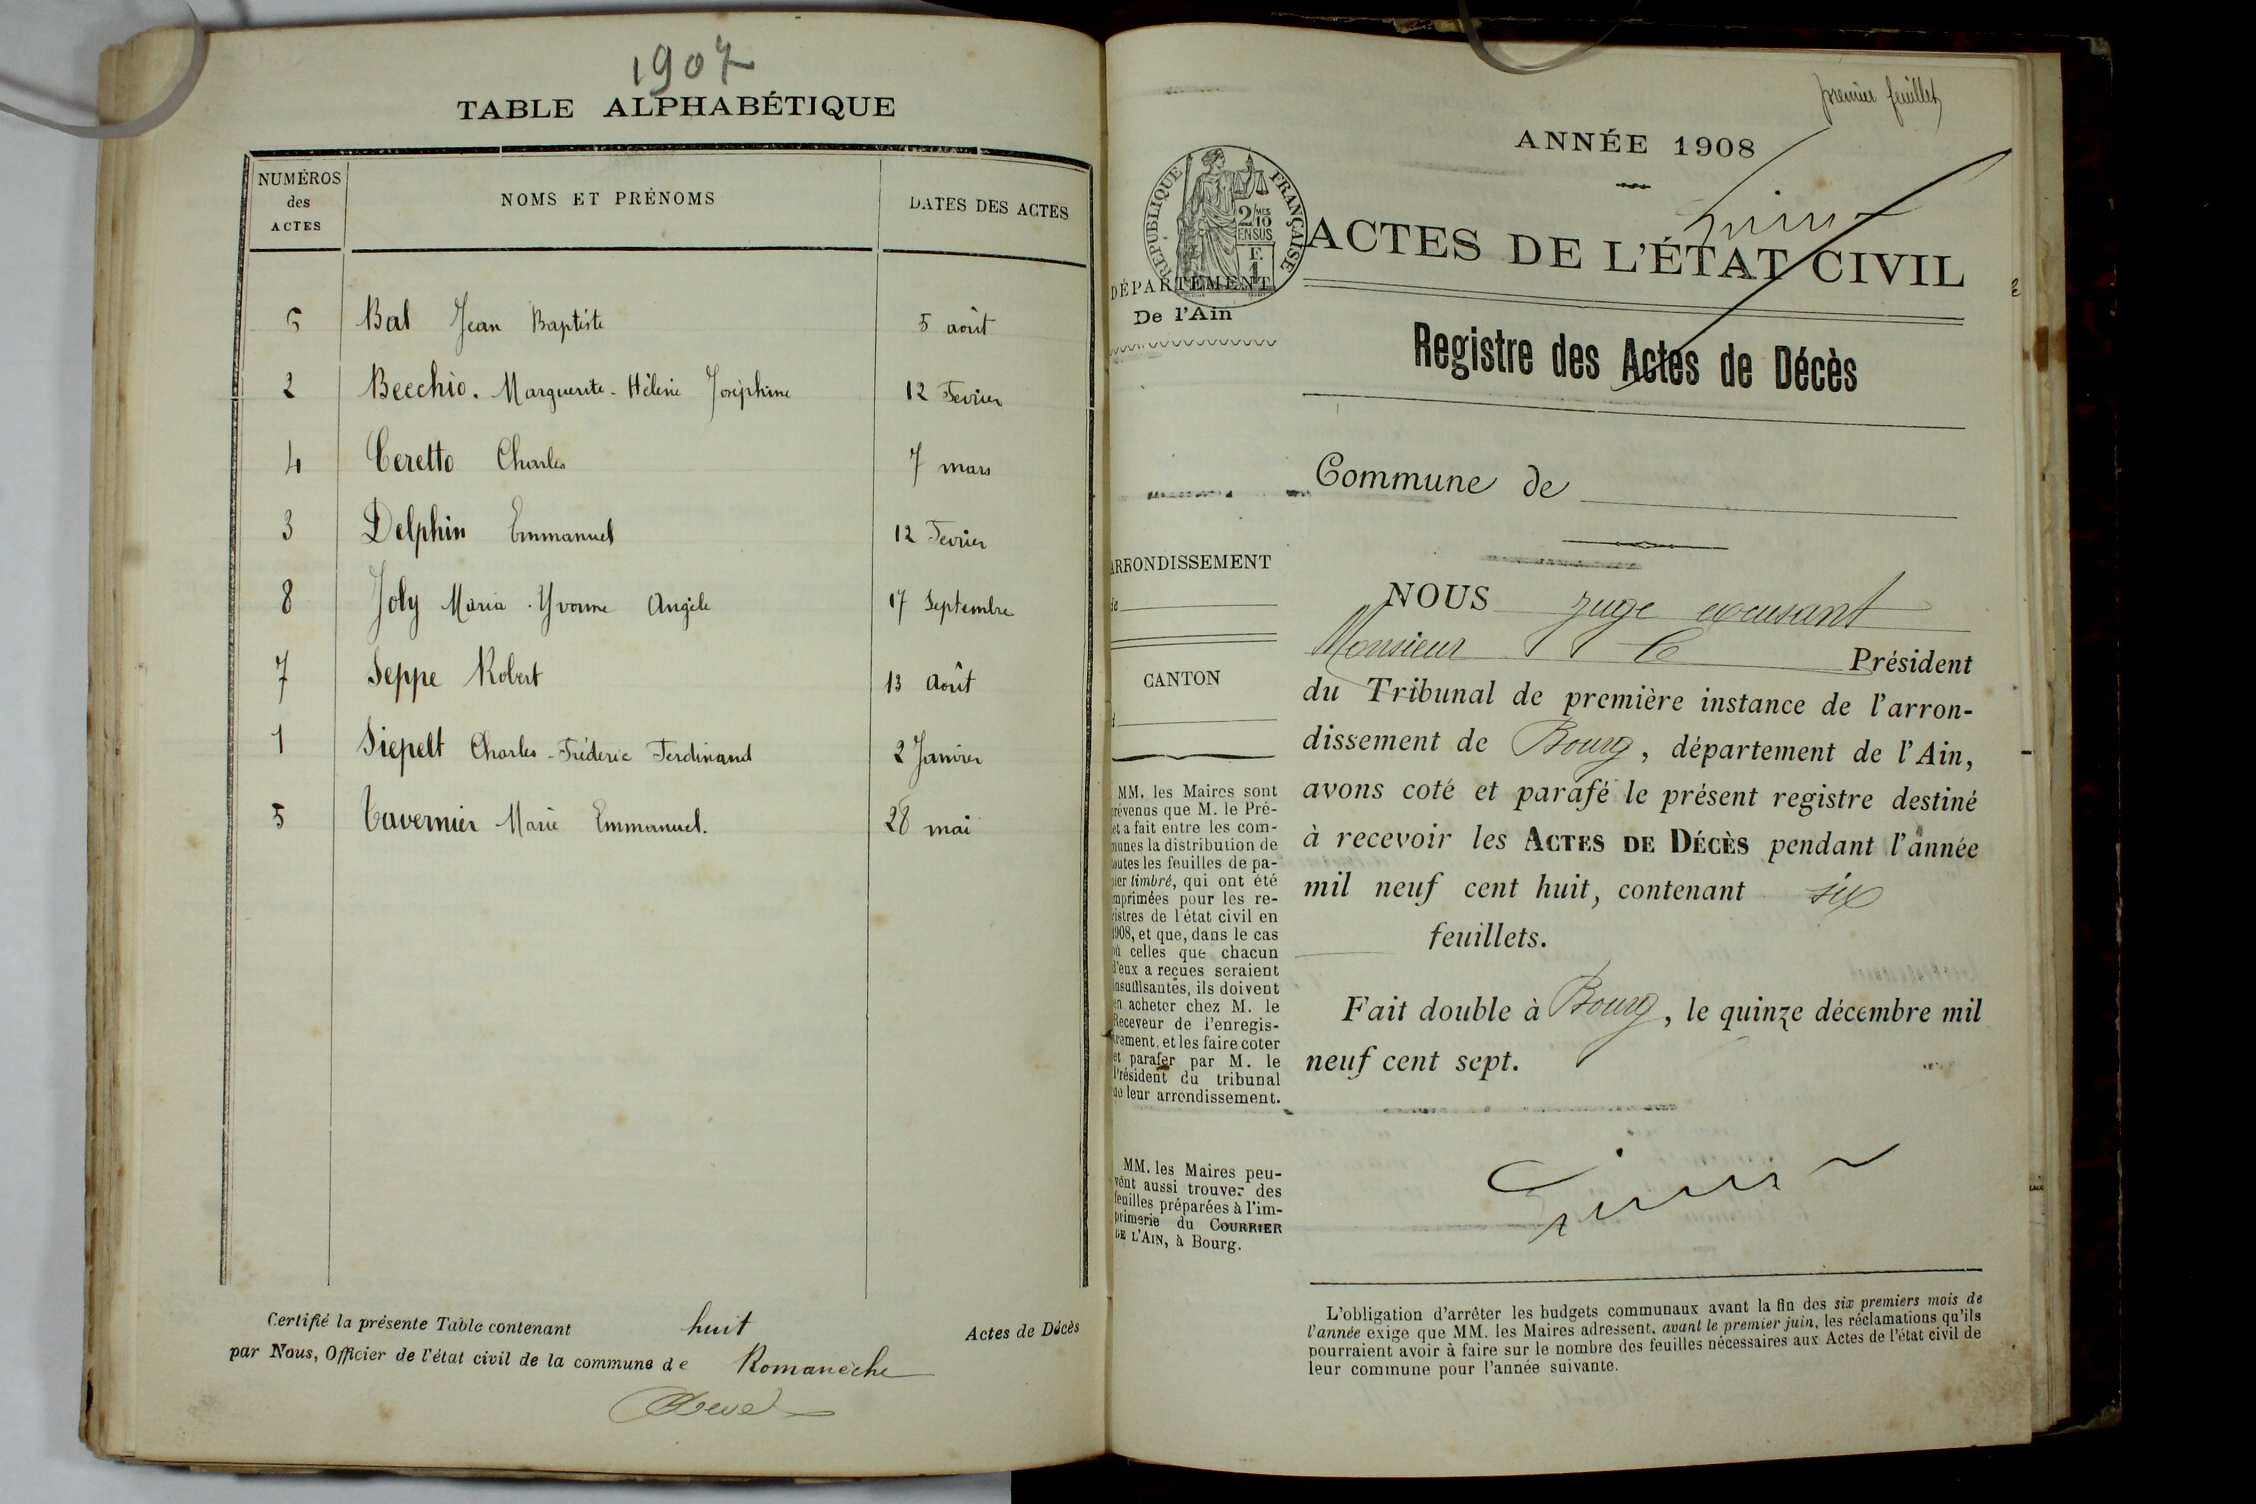 1907
TABLE ALPHABÉTIQUE
NUMÉROS des ACTES NOMS ET PRÉNOMS DATES DES ACTES
6 Bal Jean Baptiste 5 août
2 Becchio. Marguerite-Hélène Joséphine 12 Fevrier
4 Ceretto Charles 7 mars
3 Delphin Emmanuel 12 Fevrier
8 Joly Maria Yvonne Angèle 17 Septembre
7 Seppe Robert 13 Août
1 Siepelt Charles-Fréderic Ferdinand 2 Janvier
5 Tavernier Marie Emmanuel. 28 mai
Certifié la présente Table contenant huit Actes de Décès
par Nous, Officier de l'état civil de la commune de Romanèche
premier feuillet
ANNÉE 1908
RÉPUBLIQUE FRANÇAISE
2/10
MES
EN SUS
1 F.
ACTES DE L'ÉTAT CIVIL
DÉPARTEMENT
De l'Ain
Registre des Actes de Décès
Commune de
ARRONDISSEMENT
de
CANTON
d
MM. les Maires sont
prévenus que M. le Pré-
fet a fait entre les com-
munes la distribution de
toutes les feuilles de pa-
pier timbré, qui ont été
imprimées pour les re-
gistres de l'état civil en
1908, et que, dans le cas
où celles que chacun
d'eux a reçues seraient
insuffisantes, ils doivent
en acheter chez M. le
Receveur de l'enregis-
trement, et les faire coter
et parafer par M. le
Président du tribunal
de leur arrondissement.
MM. les Maires peu-
vent aussi trouver des
feuilles préparées à l'im-
primerie du COURRIER
DE L'AIN, à Bourg.
NOUS juge excusant
Monsieur le Président
du Tribunal de première instance de l'arron-
dissement de Bourg, département de l'Ain,
avons coté et parafé le présent registre destiné
à recevoir les ACTES DE DÉCÈS pendant l'année
mil neuf cent huit, contenant six
feuillets.
Fait double à Bourg, le quinze décembre mil
neuf cent sept.
L'obligation d'arrêter les budgets communaux avant la fin des six premiers mois de
l'année exige que MM. les Maires adressent, avant le premier juin, les réclamations qu'ils
pourraient avoir à faire sur le nombre des feuilles nécessaires aux Actes de l'état civil de
leur commune pour l'année suivante.